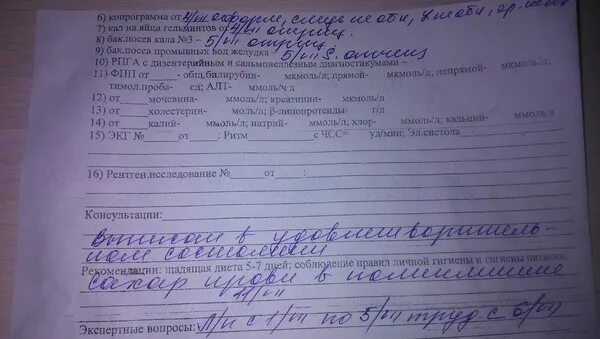 6) копрограмма от 4/VII оформл, слизь не обн, я/гл не обн, эр.
7) кал на яйца гельминтов от 4/VII отриц.
8) бак.посев кала №3 – 5/VII отриц.
9) бак.посев промывных вод желудка – 5/VII отриц
10) РПГА с дизентерийным и сальмонеллезным диагностикумами –
11) ФПП от____- общ.билирубин- мкмоль/л; прямой- мкмоль/л; непрямой- мкмоль/л;
тимол.проба- ед; АЛТ- ммоль/ч л
12) от____мочевина- ммоль/л; креатинин- мкмоль/л
13) от____холестерин- моль/л; β-липопротеиды- г/л
14) от____калий- ммоль/л; натрий- ммоль/л; хлор- ммоль/л; кальций- ммоль/л
15) ЭКГ №____ от____: Ритм____с ЧСС=____уд/мин; Эл.систола
16) Рентген.исследование №____от____:
Консультации:
Выписан в удовлетворитель-
ном состоянии
Рекомендации: щадящая диета 5-7 дней; соблюдение правил личной гигиены и гигиены питания;
сахар крови в поликлинике
Экспертные вопросы: Л/н с 1/VII по 5/VII труд с 6/VII